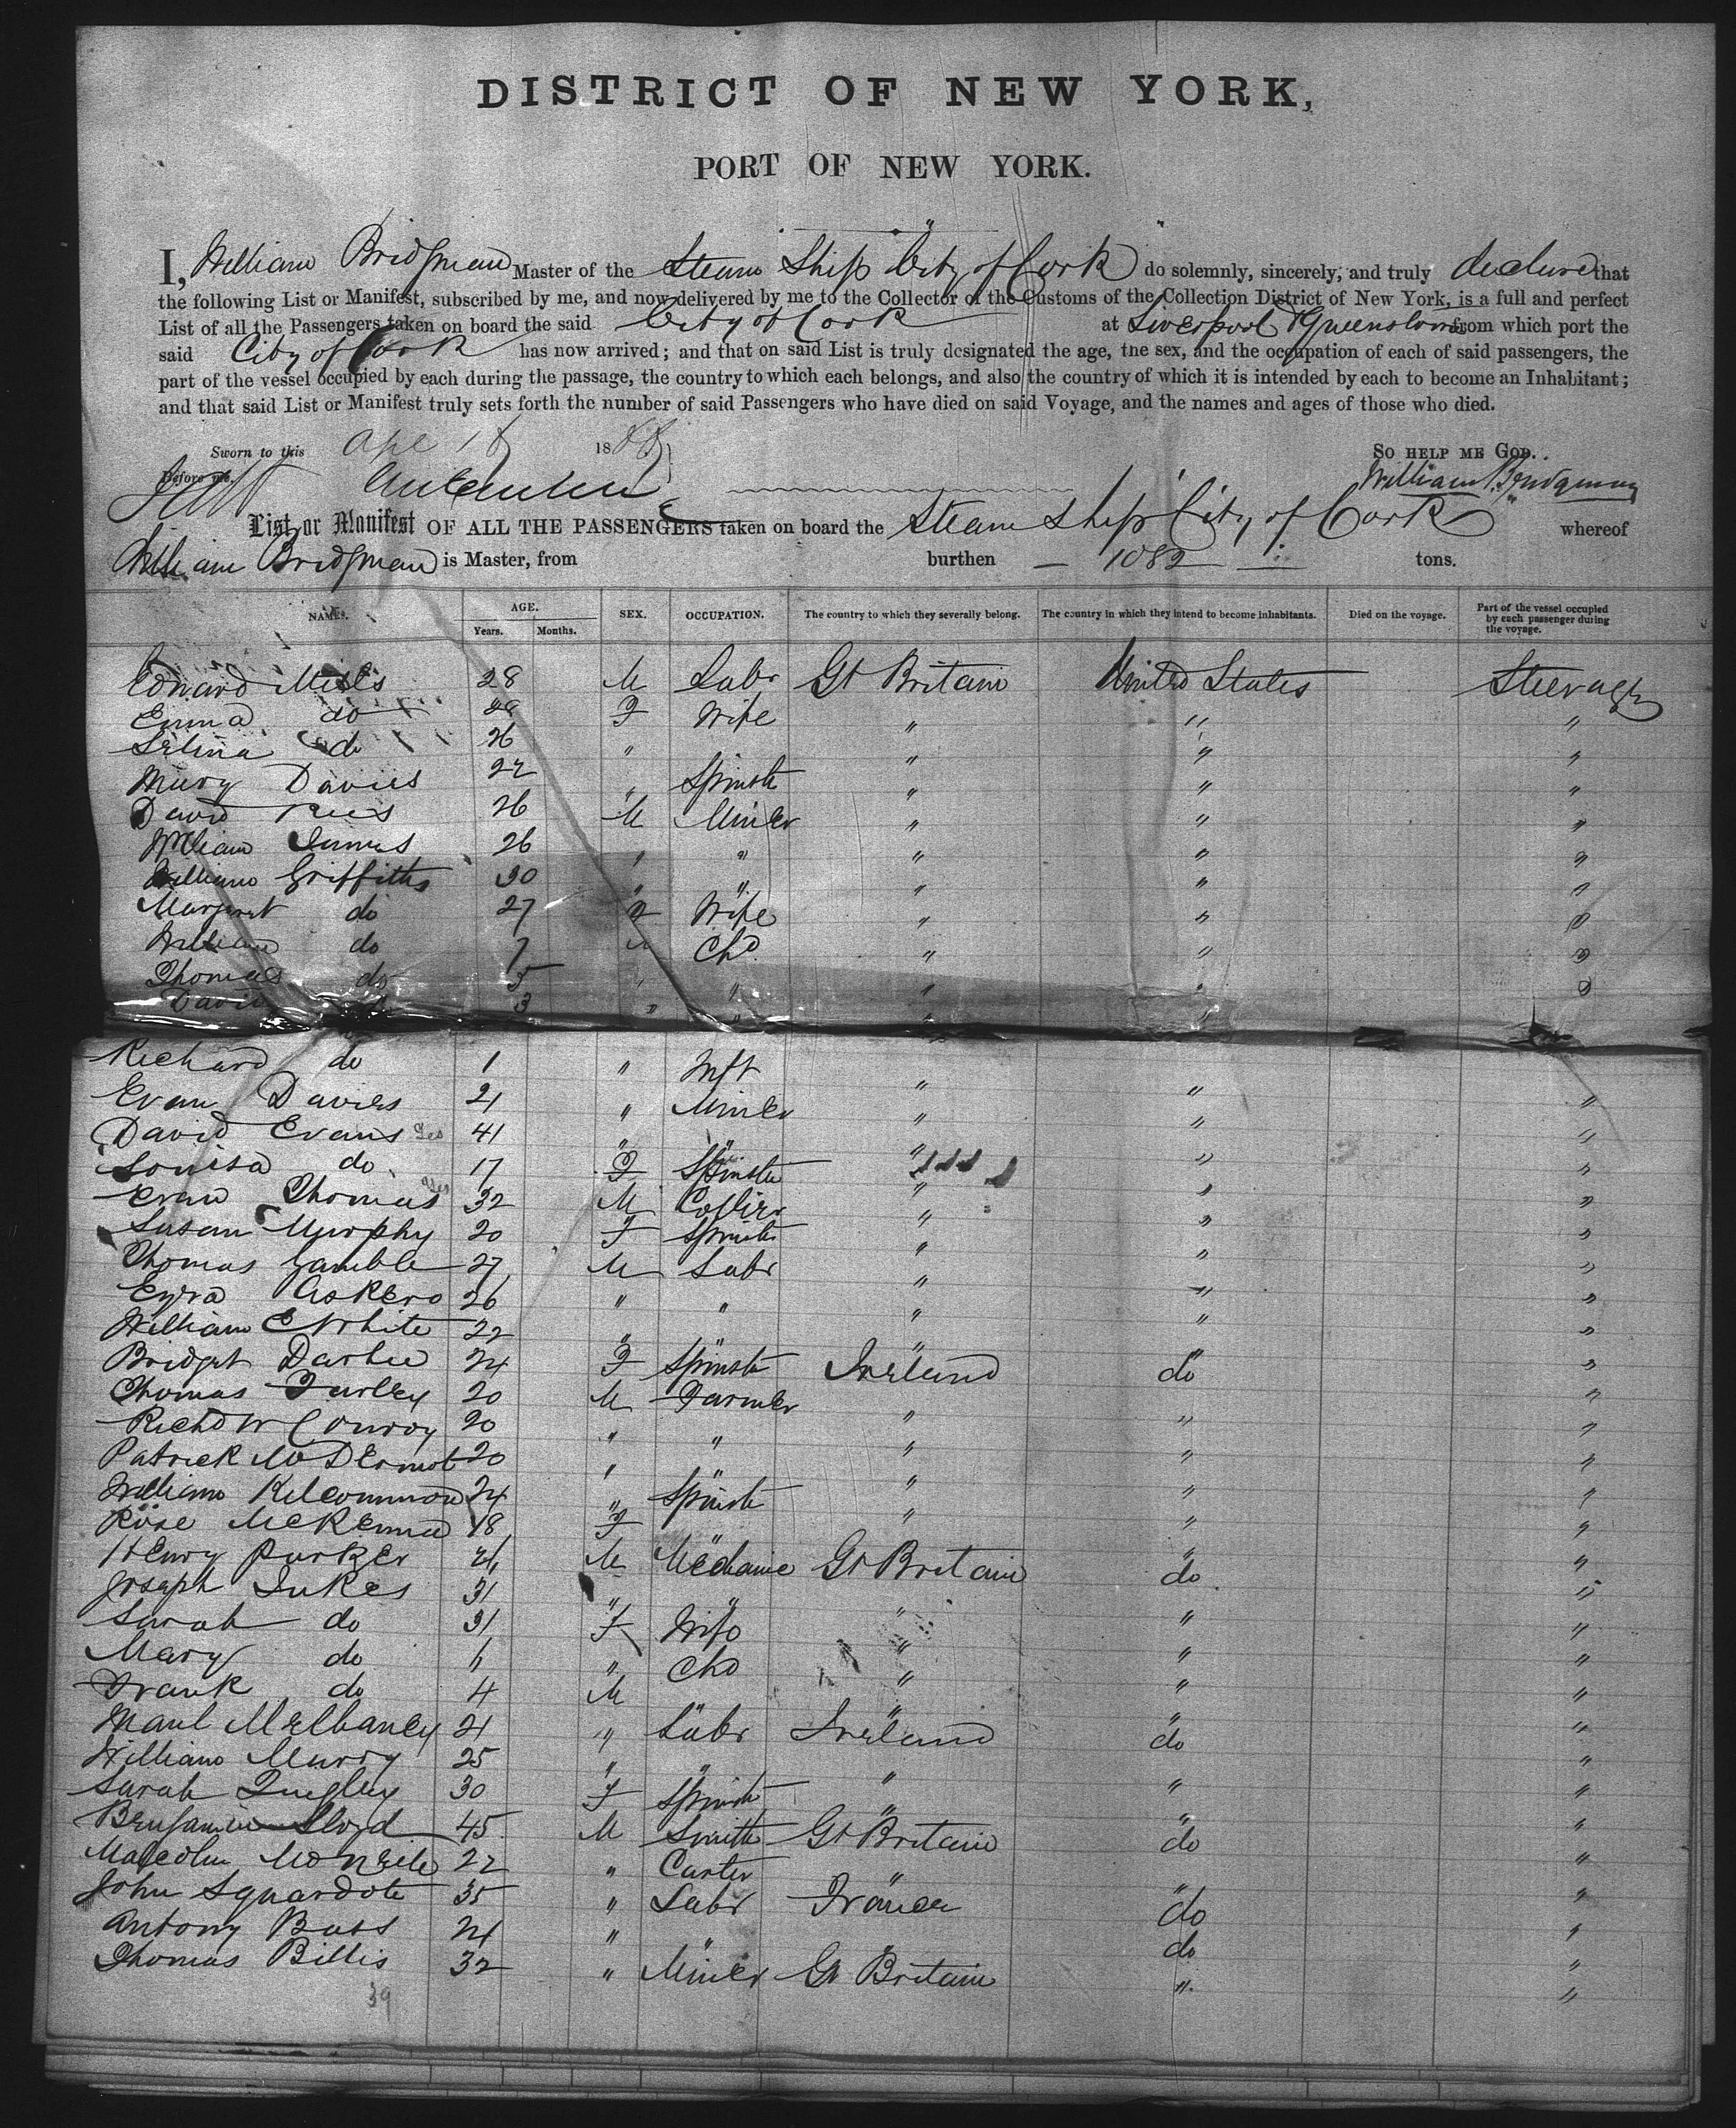 DISTRICT OF NEW YORK,
PORT OF NEW YORK.
I, William Bridgman Master of the Steam Ship City of Cork do solemnly, sincerely, and truly declare that
the following List or Manifest, subscribed by me, and now delivered by me to the Collector of the Customs of the Collection District of New York, is a full and perfect
List of all the Passengers taken on board the said City of Cork at Liverpool & Queenstown from which port the
said City of Cork has now arrived; and that on said List is truly designated the age, the sex, and the occupation of each of said passengers, the
part of the vessel occupied by each during the passage, the country to which each belongs, and also the country of which it is intended by each to become an Inhabitant;
and that said List or Manifest truly sets forth the number of said Passengers who have died on said Voyage, and the names and ages of those who died.
Sworn to this Apl 18 18 So help me God.
Before me, William Bridgman
List or Manifest OF ALL THE PASSENGERS taken on board the Steam Ship City of Cork whereof
William Bridgman is Master, from burthen 1082 tons.
NAMES. AGE. Years. Months. SEX. OCCUPATION. The country to which they severally belong. The country in which they intend to become inhabitants. Died on the voyage. Part of the vessel occupied by each passenger during the voyage.
Edward Mills 28 M Labr Gt Britain United States Steerage
Emma do 28 F Wife " " "
Selina do 26 " " " "
Mary Davies 22 " Spinstr " " "
David Rees 26 M Miner " " "
William James 26 " " " " "
William Griffiths 30 " " " " "
Margaret do 27 F Wife " " "
William do 7 M Chd " " "
Thomas do 5 " " " " "
David 3 " " " "
Richard do 1 " Inft " " "
Evan Davies 21 " Miner " " "
David Evans 41 " " " " "
Louisa do 17 F Spinstr " " "
Evan Thomas 32 M Collier " " "
Susan Murphy 20 F Spinstr " " "
Thomas Gamble 27 M Labr " " "
Ezra 26 " " " " "
William E White 22 " " " " "
Bridget 24 F Spinstr Ireland do "
Thomas Farley 20 M Farmer " " "
Richd W Conroy 20 " " " " "
Patrick McDermot 20 " " " " "
William Kilcommon 24 " Spinstr " " "
Rose McKenna 18 F " " "
Henry Parker 21 M Mechanic Gt Britain do "
Joseph Jukes 31 " " " " "
Sarah do 31 F Wife " " "
Mary do 6 " Chd " " "
Frank do 4 M " " " "
21 " Labr Ireland do "
William Murry 25 " " " " "
Sarah Quigley 30 F Spinstr " " "
Benjamin Lloyd 45 M Smith Gt Britain do "
Malcolm McNeile 22 " Carter " " "
John Squardote 35 " Labr France do "
Antony Bass 24 " " " do "
Thomas Billis 32 " Miner Gt Britain " "
39